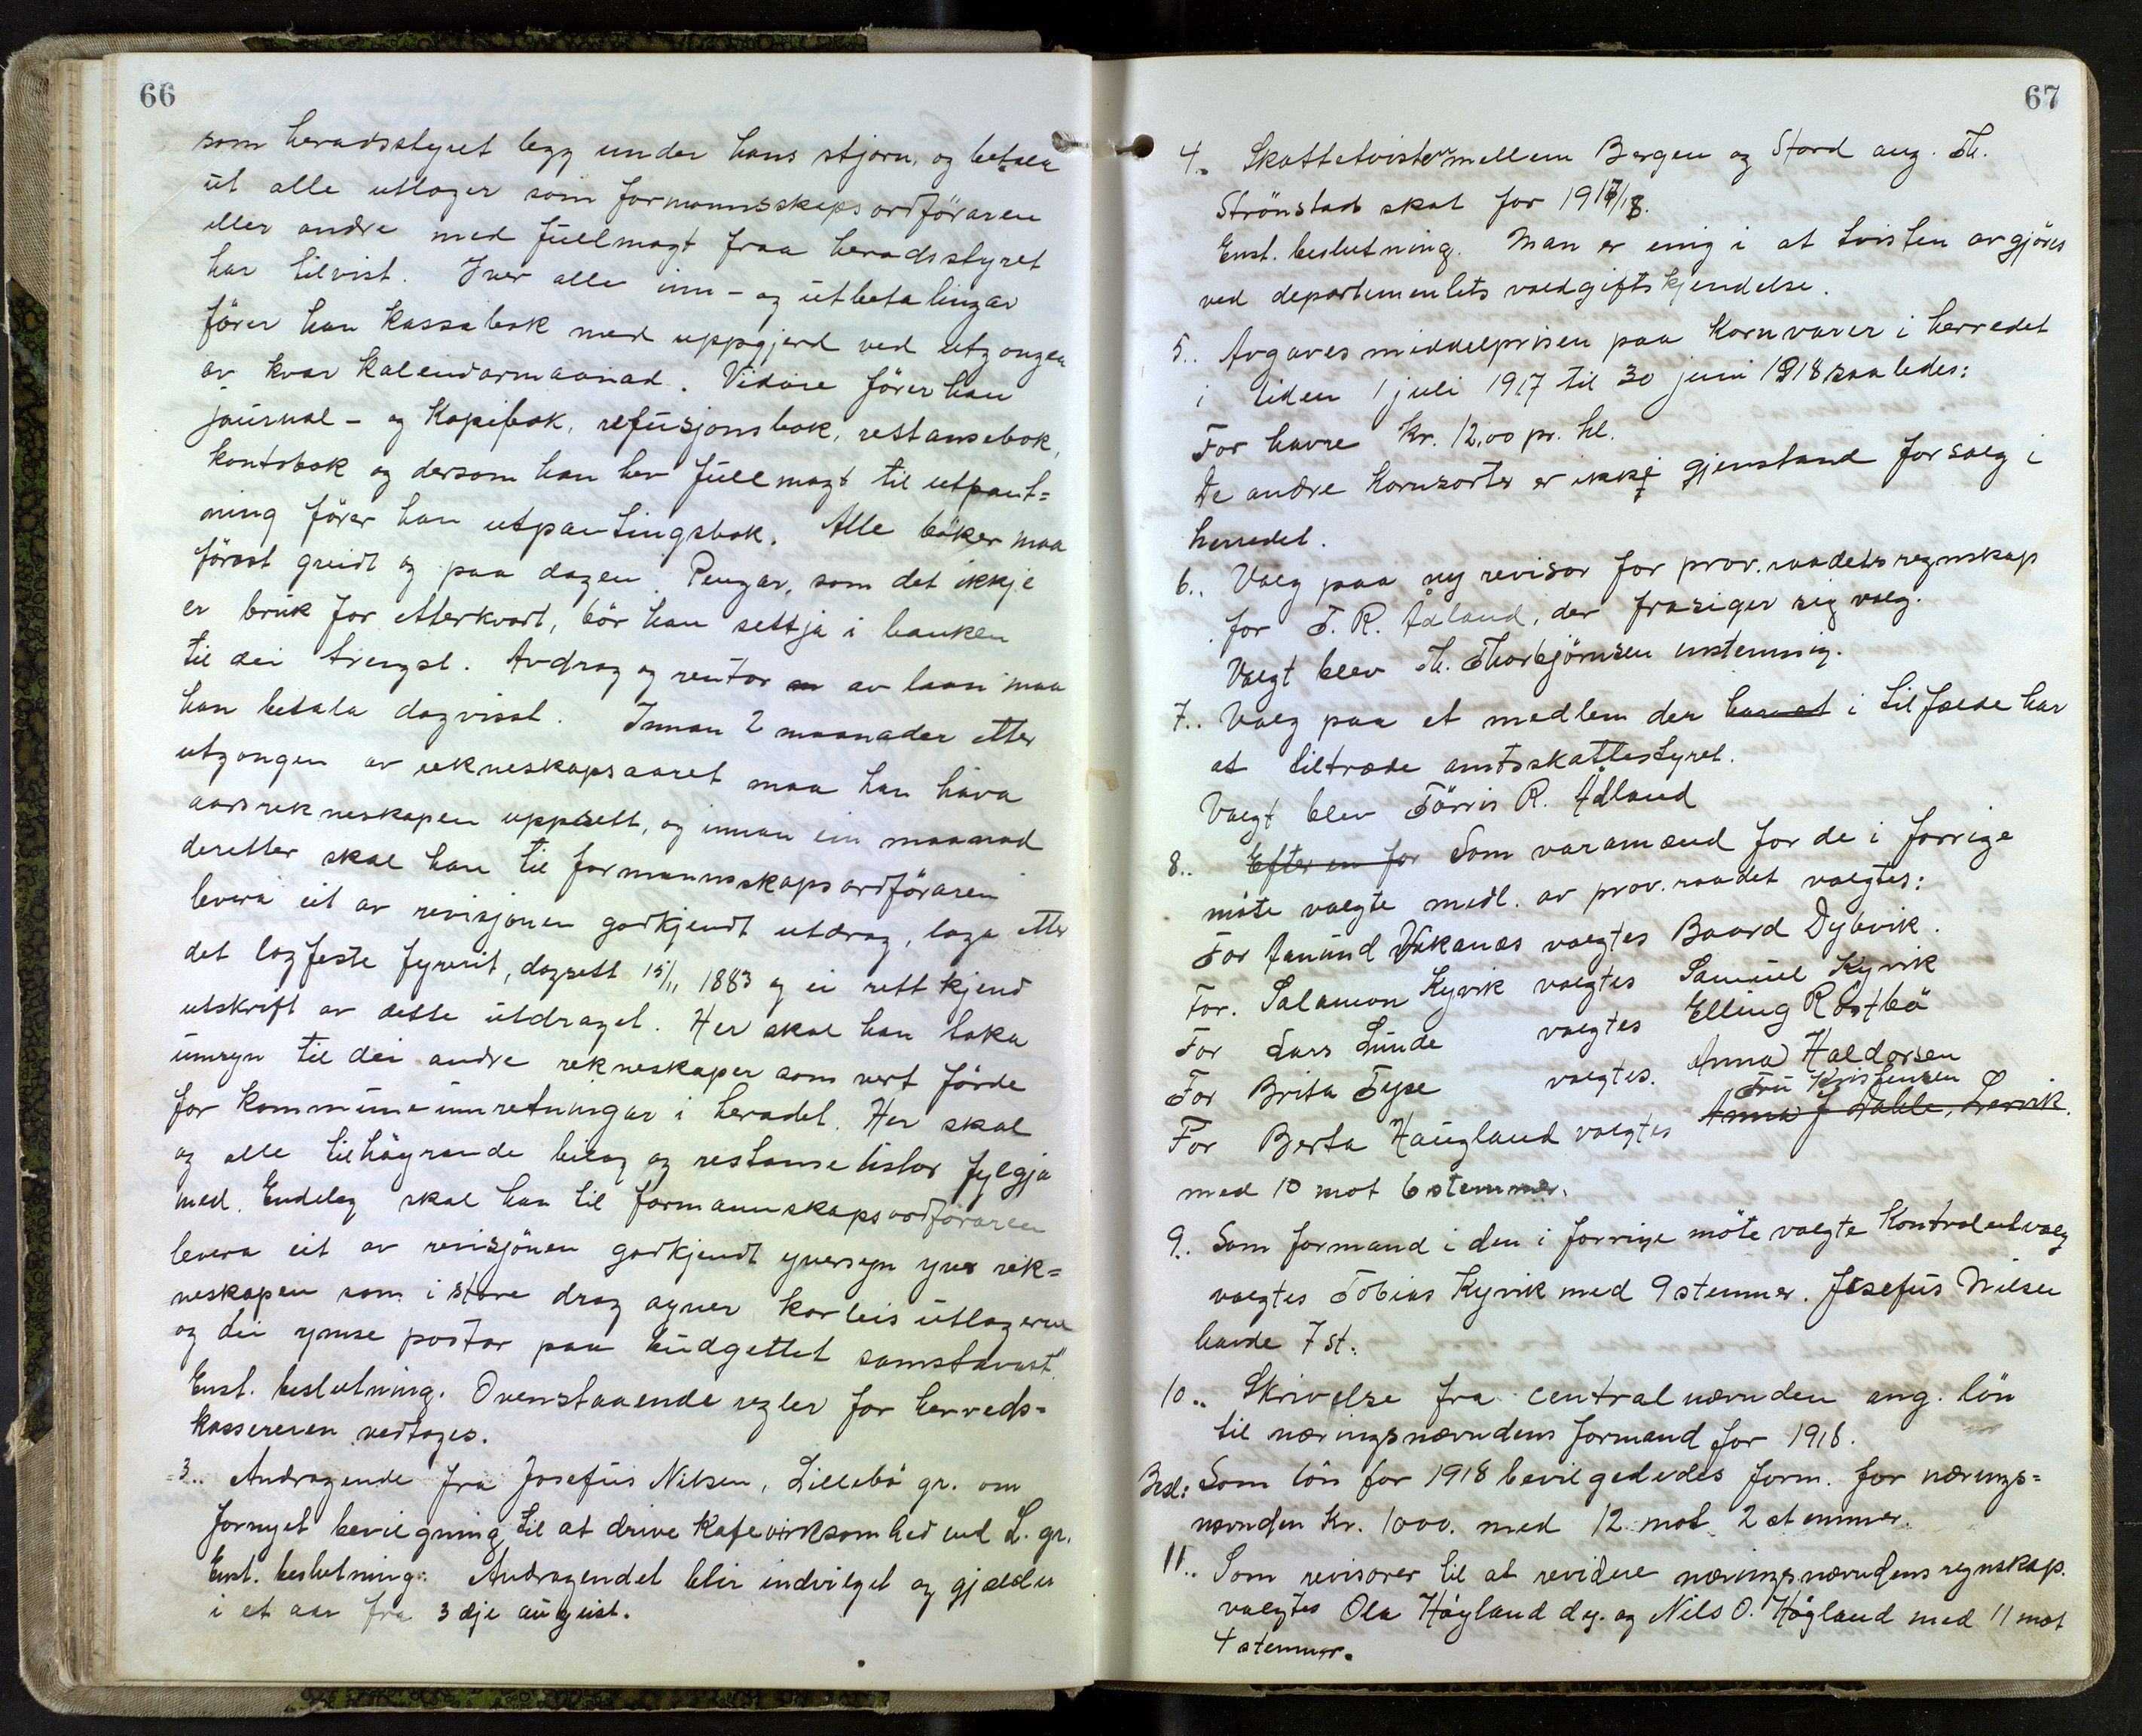 66
som heradsstyret legg under hans stjorn, og betala
ut alle utlogor som formannsskapsordföraren
eller andre med fullmagt fraa heradsstyret
har tilvist. Iver alle inn- og utbetalingar
förer han kassabok med uppgjerd ved utgongen
av kvar kalendarmaanad. Vidare förer han
journal- og kopibok, refusjonsbok, restansebok,
kontobok og dersom han hev fullmagt til utpant=
ning förer han utpantingsbok. Alle böker maa
förast greidt og paa dagen. Pengar, som det ikkje
er bruk for etterkvart, bör han settja i banken
til dei trengst. Avdrag og rentor av laan maa
han betala dagvisst. Innan 2 maanader etter
utgongen av rekneskapsaaret maa han hava
aarsrekneskapen uppsett, og innan ein maanad
deretter skal han til formannsskapsordföraren
levera eit av revisjonen godkjendt utdrag, laga etter
det lagfeste fyrerit, dagsett 15/11 1883 og ei rettkjend
utskrift av dette utdraget. Her skal han taka
umsyn til dei andre rekneskaper som vert förde
for kommuneinnretningar i heradet. Her skal
og alle tilhöyrande bilag og restanselistor fylgja
med. Endeleg skal han til formannskapsordföraren
levera eit av revisjonen godkjendt yversyn yver rek=
neskapen som i store drag syner korleis utlogerne
og dei ymse postar paa budgettet samstavast".
Enst. beslutning. Ovenstaaende regler for herreds=
kassereren vedtages.
3.. Andragende fra Josefus Nilsen, Lillebö gr. om
fornyet bevilgning til at drive kafevirksomhed ved L. gr.
Enst. beslutning: Andragendet blir indvilget og gjælder
i et aar fra 3dje august.
67
4.. Skattetvisten mellem Bergen og Stord ang. Th.
Strönstad skat for 1917/18.
Enst. beslutning. Man er enig i at tvisten avgjöres
ved departementets voldgiftskjendelse.
5.. Avgaves middelprisen paa kornvarer i herredet
i tiden 1 juli 1917 til 30 juni 1918 saaledes:
For havre kr. 12,00 pr. hl.
De andre kornsorter er ikke gjenstand for salg i
herredet.
6.. Valg paa ny revisor for prov.raadets regnskap
for T. R. Ådland, der frasiger sig valg.
Valgt blev Th. Thorbjörnsen enstemmig.
7.. Valg paa et medlem der har at i tilfælde har
at tiltræde amtsskattestyret.
Valgt blev Törris R. Ådland
8.. Efter en for Som varamænd for de i forrige
möte valgte medl. av prov.raadet valgtes:
For Amund Vskanæs valgtes Baard Dybvik.
For. Salamon Kyvik valgtes Samuel Kyvik
For Lars Lunde valgtes Elling Rostbö
For Brita Tyse valgtes. Anna Haldorsen
Fru Kristensen
For Berta Haugland valgtes Anna J Dahle, Lervik.
med 10 mot 6 stemmer.
9.. Som formand i den i forrige möte valgte kontrolutvalg
valgtes Tobias Kyvik med 9 stemmer. Josefus Nilsen
havde 7 st.
10.. Skrivelse fra centralnævnden ang. lön
til næringsnævndens formand for 1918.
Besl: Som lön for 1918 bevilgedes form. for nærings=
nævnden Kr. 1000. med 12 mot 2 stemmer.
11.. Som revisorer til at revidere næringsnævndens regnskap.
valgtes Ola Höyland dy. og Nils O. Högland med 11 mot
4 stemmer.